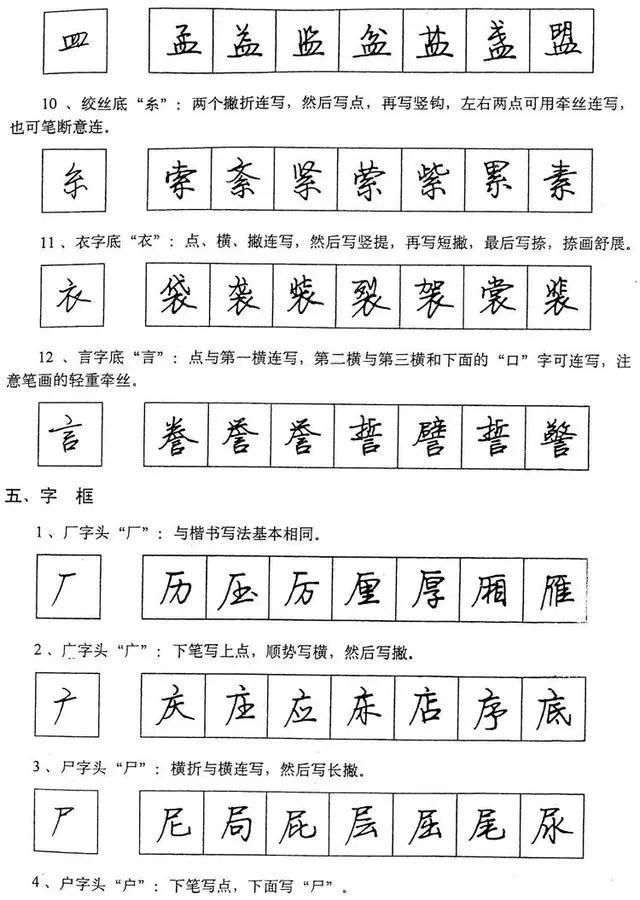 皿 孟 益 监 盆 盐 盏 盟
10、绞丝底“糸”：两个撇折连写，然后写点，再写竖钩，左右两点可用牵丝连写，
也可笔断意连。
糸 索 紊 紧 萦 紫 累 素
11、衣字底“衣”：点、横、撇连写，然后写竖提，再写短撇，最后写捺，捺画舒展。
衣 袋 袭 装 裂 袈 裳 裴
12、言字底“言”：点与第一横连写，第二横与第三横和下面的“口”字可连写，注
意笔画的轻重牵丝。
言 誊 誉 誉 誓 譬 誓 警
五、字 框
1、厂字头“厂”：与楷书写法基本相同。
厂 历 压 厉 厘 厚 厢 雁
2、广字头“广”：下笔写上点，顺势写横，然后写撇。
广 庆 庄 应 床 店 序 底
3、尸字头“尸”：横折与横连写，然后写长撇。
尸 尼 局 屁 层 屈 尾 尿
4、户字头“户”：下笔写点，下面写“尸”。